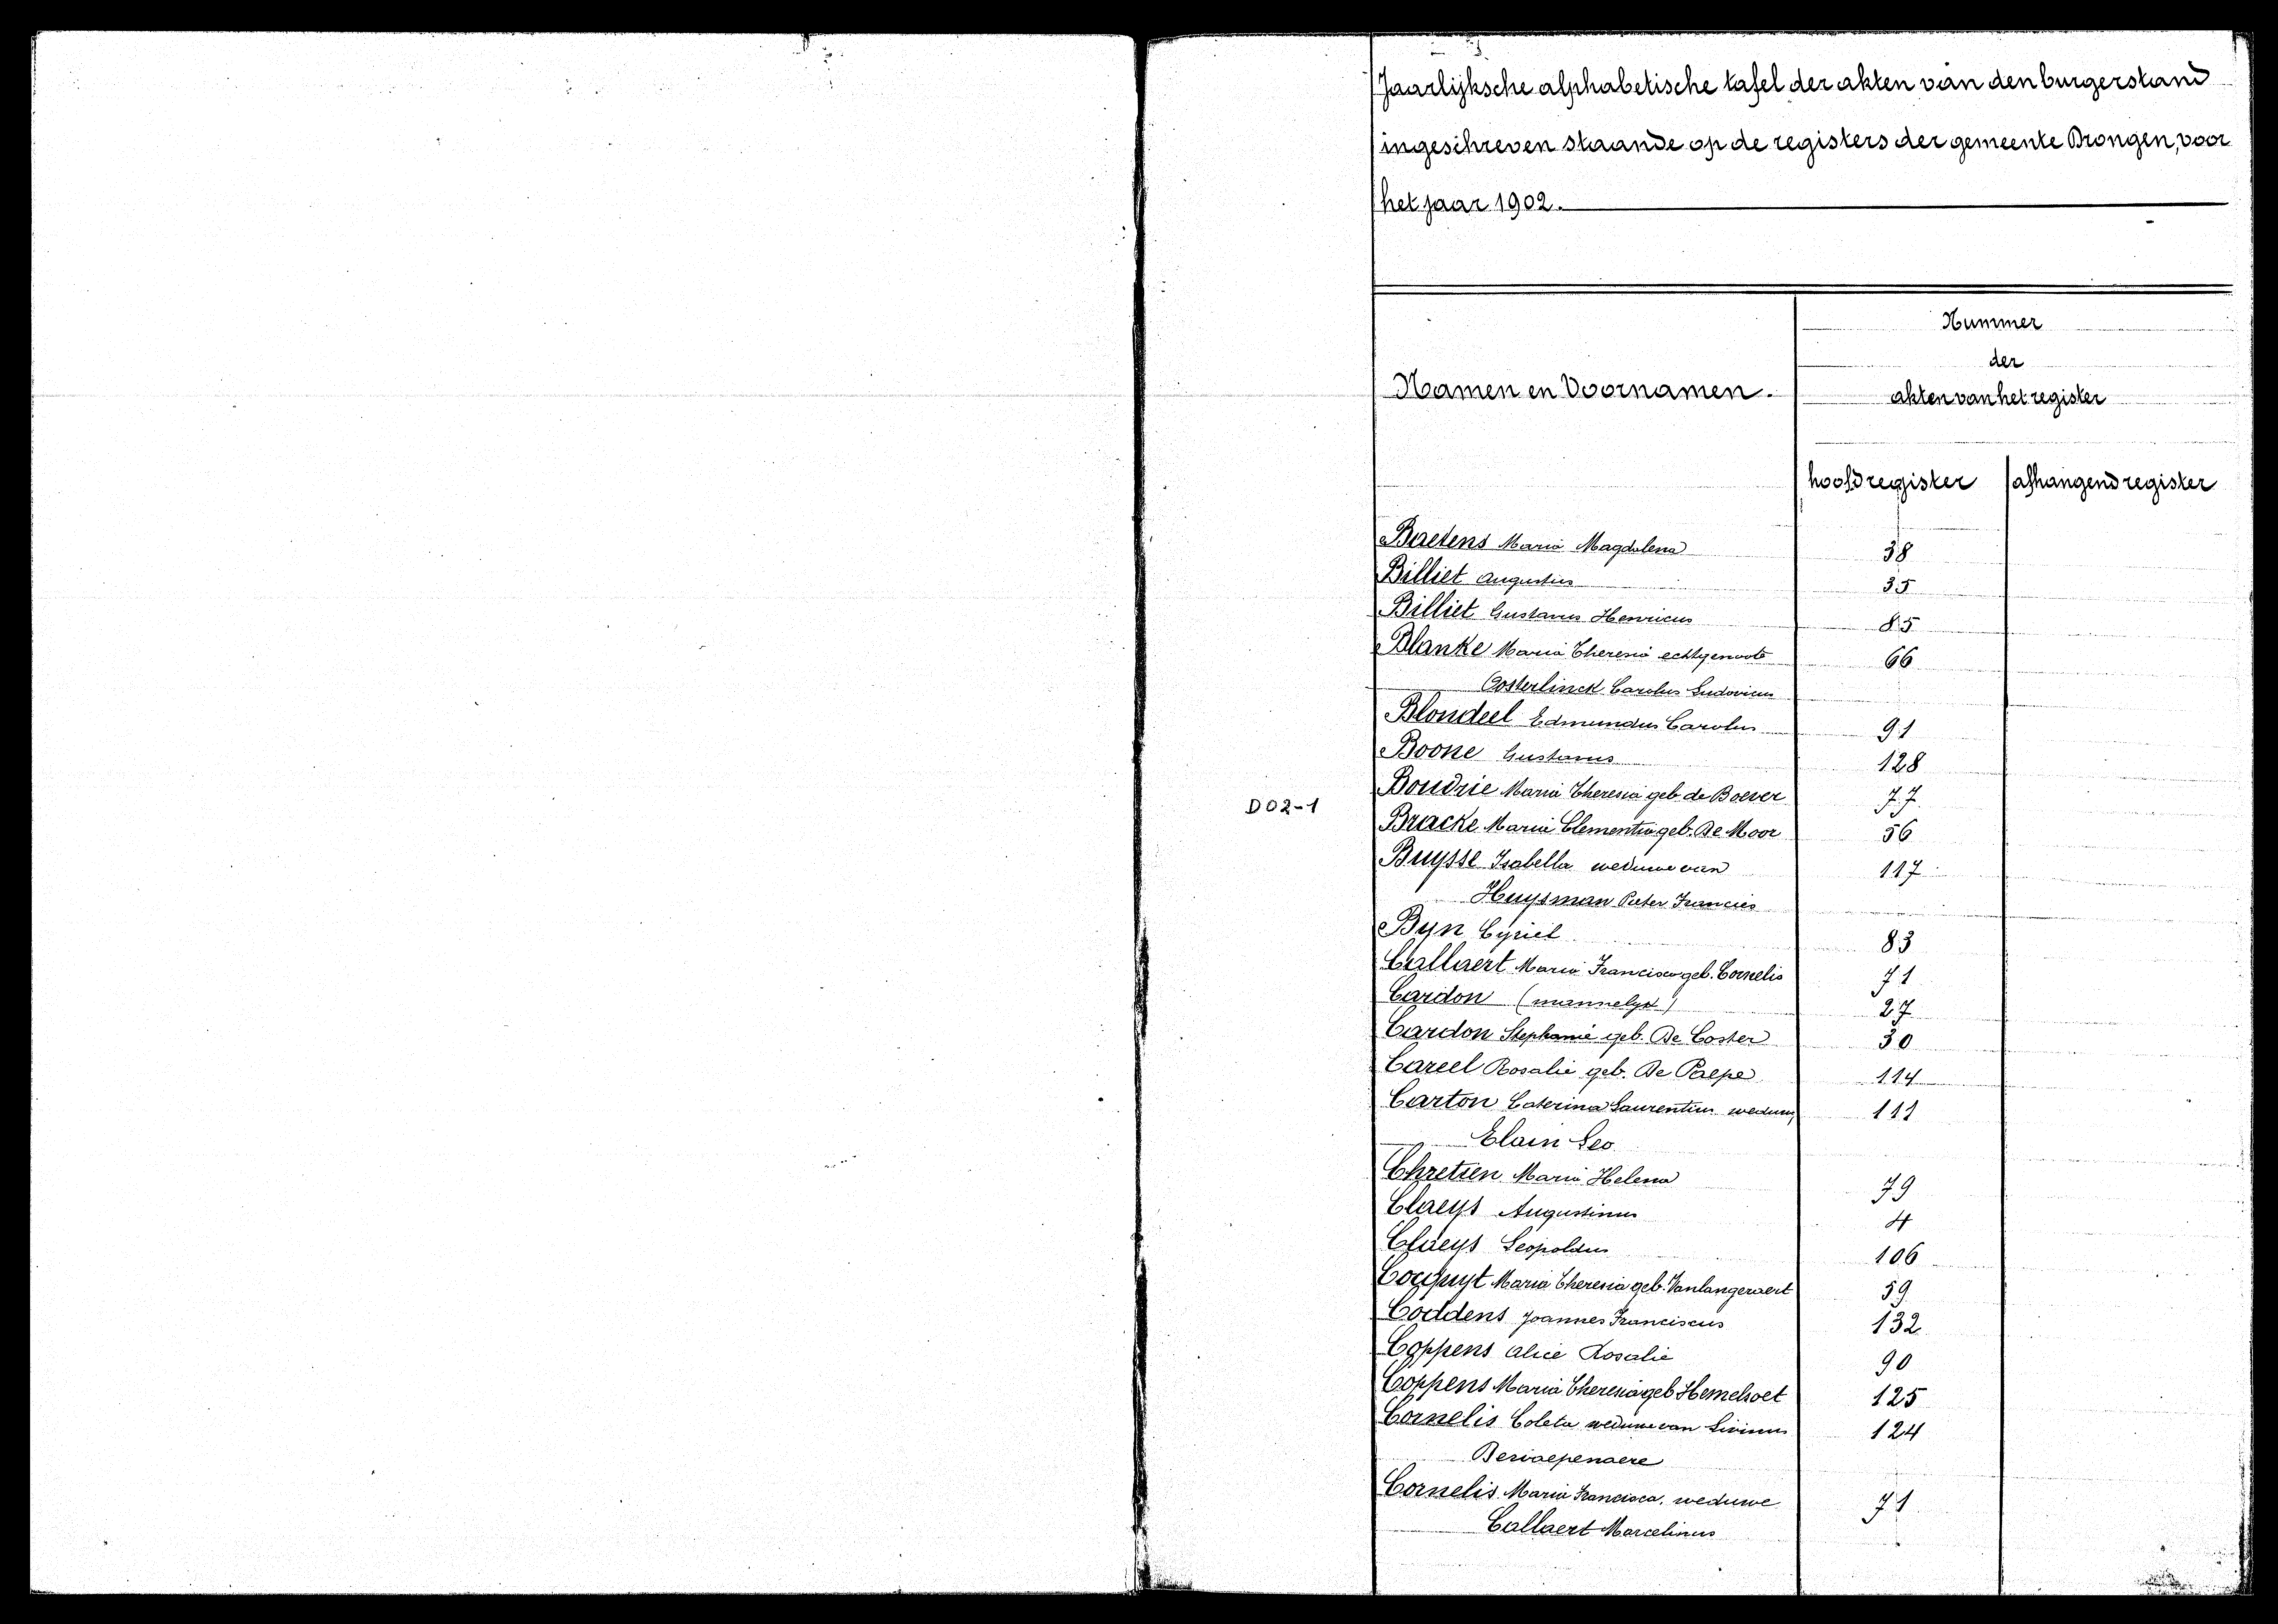 Jaarlijksche alphabetische tafel der akten van den burgerstand
ingeschreven staande op de registers der gemeente Drongen, voor
het jaar 1902.
Namen en Voornamen.
Nummer
der
akten van het register
hoofdregister
afhangend register
D02-1
Baetens Maria Magdalena 38
Billiet Augustin 35
Billiet Gustavus Henricus 85
Blanke Maria Theresia echtgenoote 66
Oosterlinck Carolus Ludovicus
Blondeel Edmundus Carolus 91
Boone Gustavus 128
Boudrie Maria Theresia geb. de Boever 77
Bracke Maria Clementia geb. De Moor 56
Buysse Isabella weduwe van 117
Huysman Pieter Francies
Byn Cyriel 83
Callaert Maria Francisca geb. Cornelis 71
Cardon (mannelyk) 27
Cardon Stephanie geb. De Coster 30
Careel Rosalie geb. De Paepe 114
Carton Caterina Laurentius weduwe 111
Elain Leo
Chretien Maria Helena 79
Claeys Augustinus 4
Claeys Leopoldus 106
Cocquyt Maria Theresia geb. Vanlangeraert 59
Coddens Joannes Franciscus 132
Coppens Alice Rosalie 90
Coppens Maria Theresia geb Hemelsoet 125
Cornelis Coleta weduwe van Livinus 124
Cornelis Maria Francisca, weduwe 71
Callaert Marcelinus